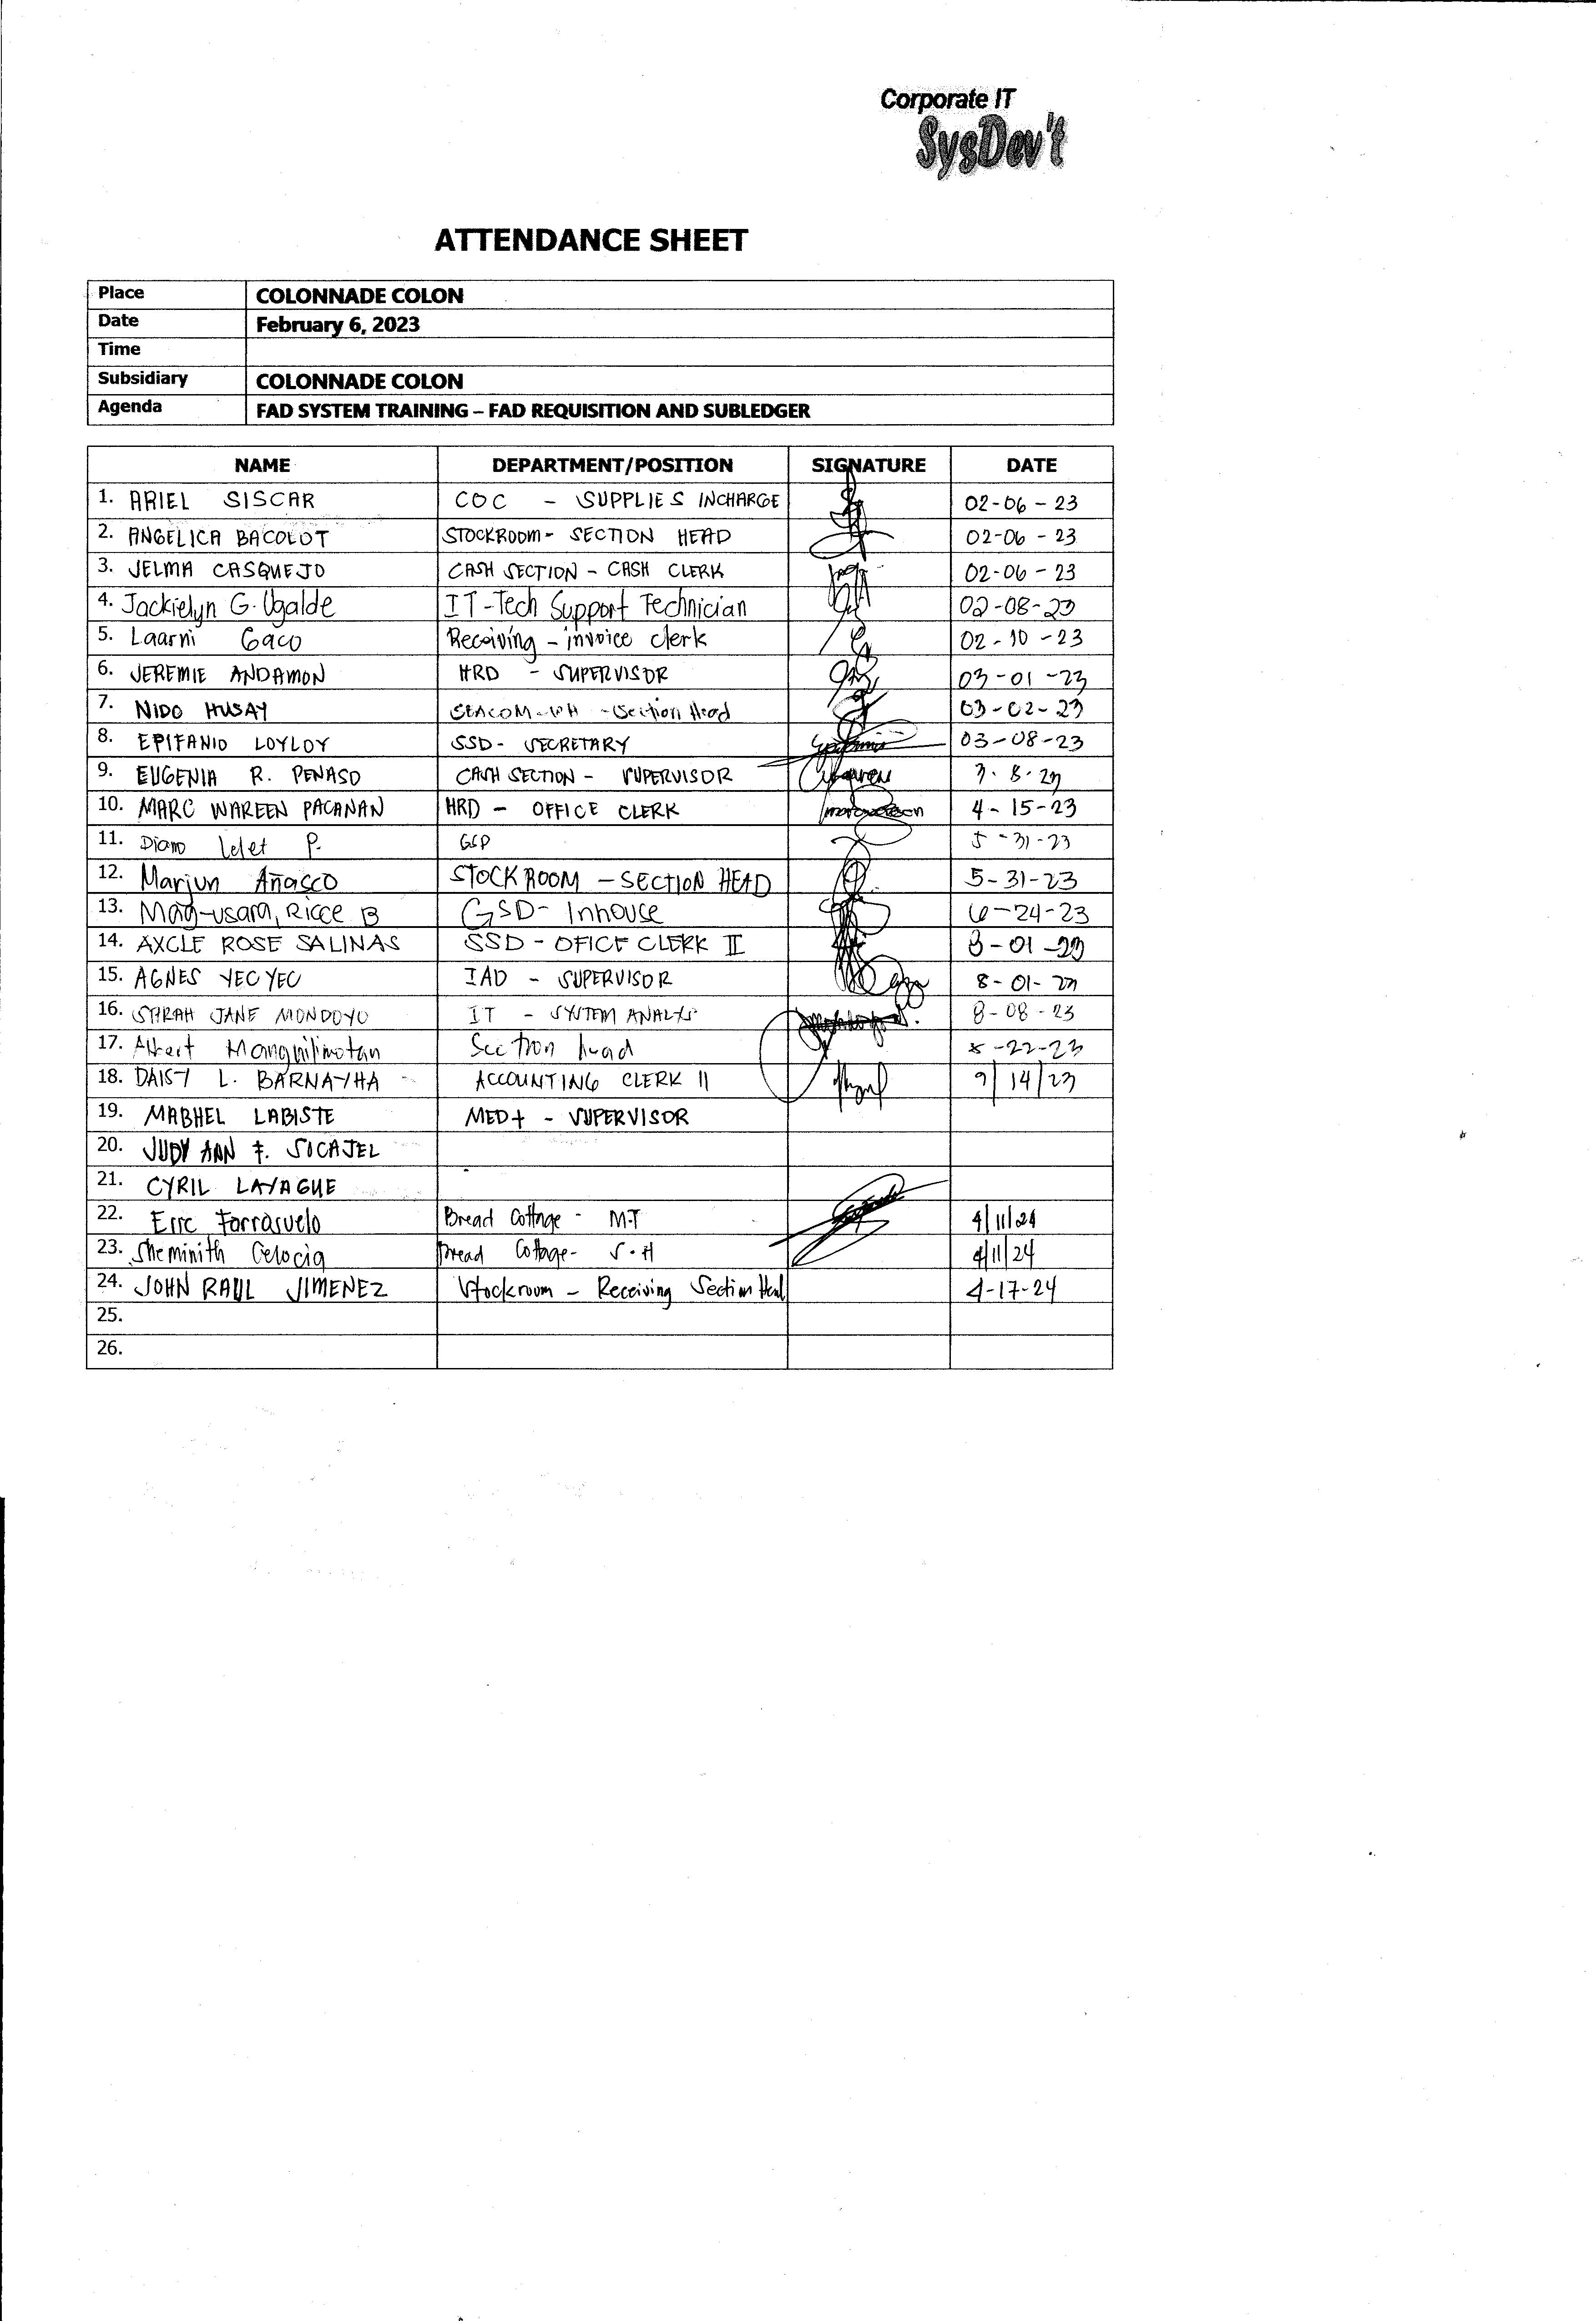 Corporate IT
SysDev't
ATTENDANCE SHEET
Place COLONNADE COLON
Date February 6, 2023
Time
Subsidiary COLONNADE COLON
Agenda FAD SYSTEM TRAINING – FAD REQUISITION AND SUBLEDGER
NAME DEPARTMENT/POSITION SIGNATURE DATE
1. ARIEL SISCAR COC - SUPPLIES INCHARGE 02-06-23
2. ANGELICA BACOLOT STOCKROOM - SECTION HEAD 02-06-23
3. JELMA CASQUEJO CASH SECTION - CASH CLERK 02-06-23
4. Jackielyn G. Ugalde IT-Tech Support Technician 02-08-23
5. Laarni Gaco Receiving - invoice clerk 02-10-23
6. JEREMIE ANDAMON HRD - SUPERVISOR 03-01-23
7. NIDO HUSAY - Section Head 03-02-23
8. EPIFANIO LOYLOY SSD - SECRETARY 03-08-23
9. EUGENIA R. PENASO CASH SECTION - SUPERVISOR 3-8-23
10. MARC WAREEN PACANAN HRD - OFFICE CLERK 4-15-23
11. P. 5-31-23
12. Marjun Añasco STOCKROOM - SECTION HEAD 5-31-23
13. Mag-usara, Ricce B GSD- Inhouse 6-24-23
14. AXCLE ROSE SALINAS SSD - OFICE CLERK II 8-01-23
15. AGNES YECYEC IAD - SUPERVISOR 8-01-23
16. SARAH JANE MONDOYO IT - SYSTEM ANALYS 8-08-23
17. Albert Manguilimotan Section head 8-22-23
18. DAISY L. BARNAYHA ACCOUNTING CLERK II 9/14/23
19. MABHEL LABISTE MED+ - SUPERVISOR
20. JUDY ANN F. SOCAJEL
21. CYRIL LAYAGUE
22. Eric Farrasuelo Bread Cottage - M.T 4/11/24
23. Sheminith Celocia Bread Cottage - S.H 4/11/24
24. JOHN RAUL JIMENEZ Stockroom - Receiving Section Head 4-17-24
25.
26.